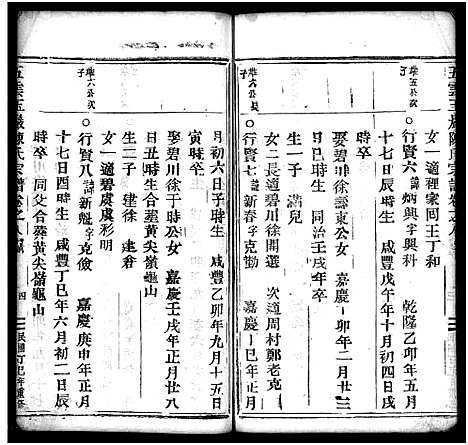 五雲玉巖陳氏宗譜卷之八
華五公次子
女一適裡家同王丁和
○行賢六諱炳興字興科 乾隆乙卯年五月
十七日辰時生 咸豐戊午年十月初四日戌
時卒
娶碧川徐壽東公女 嘉慶丁卯年二月廿三
日 時生 同治壬戌年
生一子 滿兒
女二長適徐開選 次適周村鄭老克
華六公長子
○行賢七諱新春字克勤 嘉慶丁巳年正月
月初六日子時生 咸豐乙卯年九月十五日
寅時卒
娶碧川徐于時公女 嘉慶壬戌年正月廿八
日丑時生合葬黃尖嶺龜山
生二子 建徐 建倉
女一適虞虞彩明
華六公次子
○行賢八諱新魁字克儉 嘉慶庚申年正月
十七日酉時生 咸豐丁巳年六月初二日辰
時卒 同父合葬黃尖嶺龜山
五雲玉巖陳氏宗譜卷之八
四
民國丁巳年重修